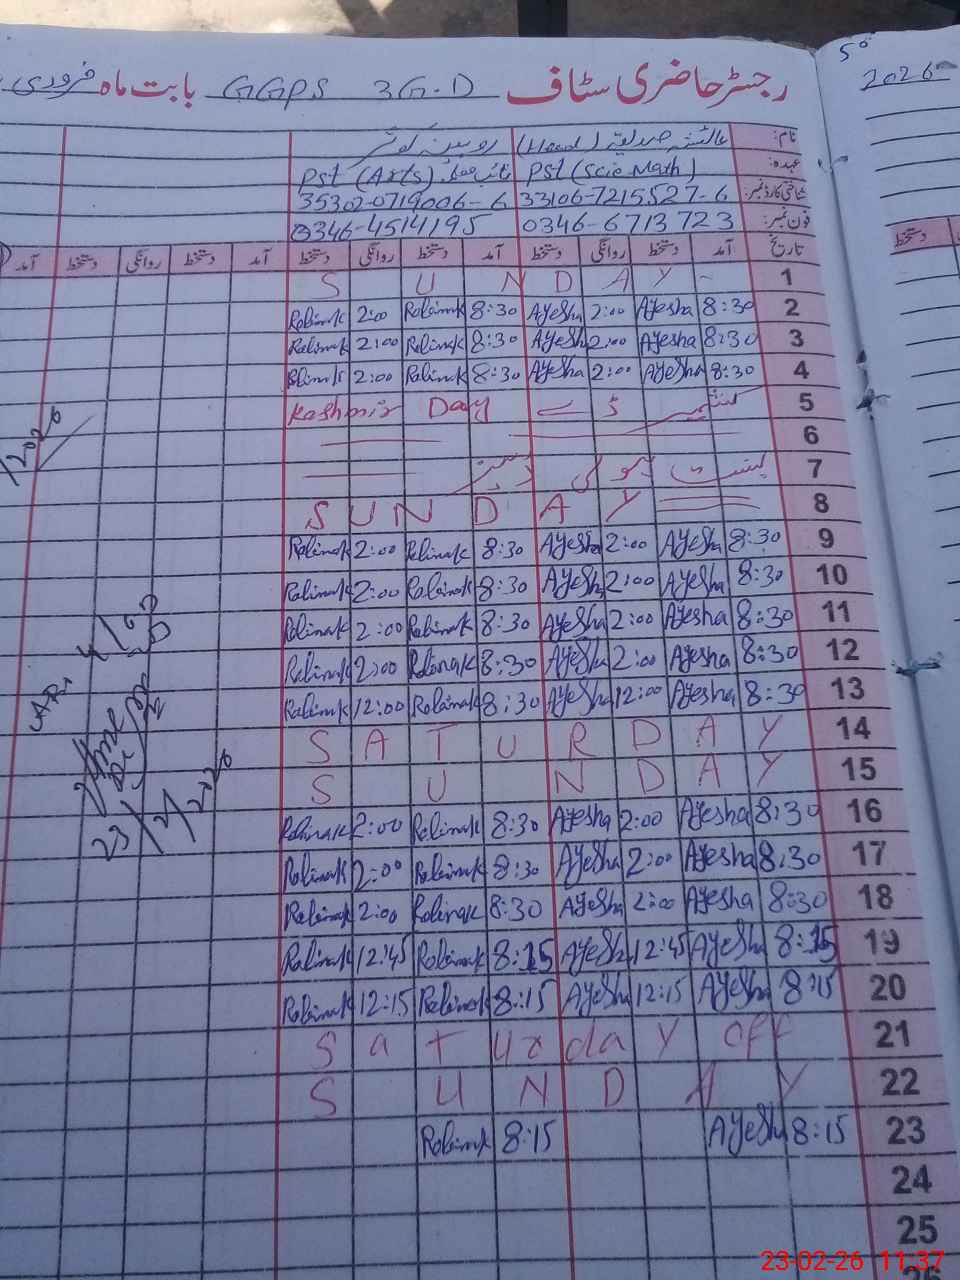 رجسٹر حاضری سٹاف GGPS 3G.D بابت ماہ فروری
5°
2026
نام: عائشہ صدیقہ (Head) روبینہ کوثر
عہدہ: PST (Scie Math) PST (Arts)
شناختی کارڈ نمبر: 33106-7215527-6 35302-0719006-6
فون نمبر: 0346-6713723 0346-4514195
تاریخ آمد دستخط روانگی دستخط آمد دستخط روانگی دستخط آمد دستخط روانگی دستخط آمد
دستخط
1 SUNDAY
2 8:30 Ayesha 2:00 Ayesha 8:30 Robinak 2:00 Robinak
3 8:30 Ayesha 2:00 Ayesha 8:30 Robinak 2:00 Robinak
4 8:30 Ayesha 2:00 Ayesha 8:30 Robinak 2:00 Robinak
5 Kashmir Day کشمیر ڈے
6
7
8 SUNDAY
9 8:30 Ayesha 2:00 Ayesha 8:30 Robinak 2:00 Robinak
10 8:30 Ayesha 2:00 Ayesha 8:30 Robinak 2:00 Robinak
11 8:30 Ayesha 2:00 Ayesha 8:30 Robinak 2:00 Robinak
12 8:30 Ayesha 2:00 Ayesha 8:30 Robinak 2:00 Robinak
13 8:30 Ayesha 12:00 Ayesha 8:30 Robinak 12:00 Robinak
14 SATURDAY
15 SUNDAY
16 8:30 Ayesha 2:00 Ayesha 8:30 Robinak 2:00 Robinak
17 8:30 Ayesha 2:00 Ayesha 8:30 Robinak 2:00 Robinak
18 8:30 Ayesha 2:00 Ayesha 8:30 Robinak 2:00 Robinak
19 8:15 Ayesha 12:45 Ayesha 8:15 Robinak 12:45 Robinak
20 8:15 Ayesha 12:15 Ayesha 8:15 Robinak 12:15 Robinak
21 Saturday off
22 SUNDAY
23 8:15 Ayesha 8:15 Robinak
24
25
/2026
23/2/2026
23-02-26 11:37